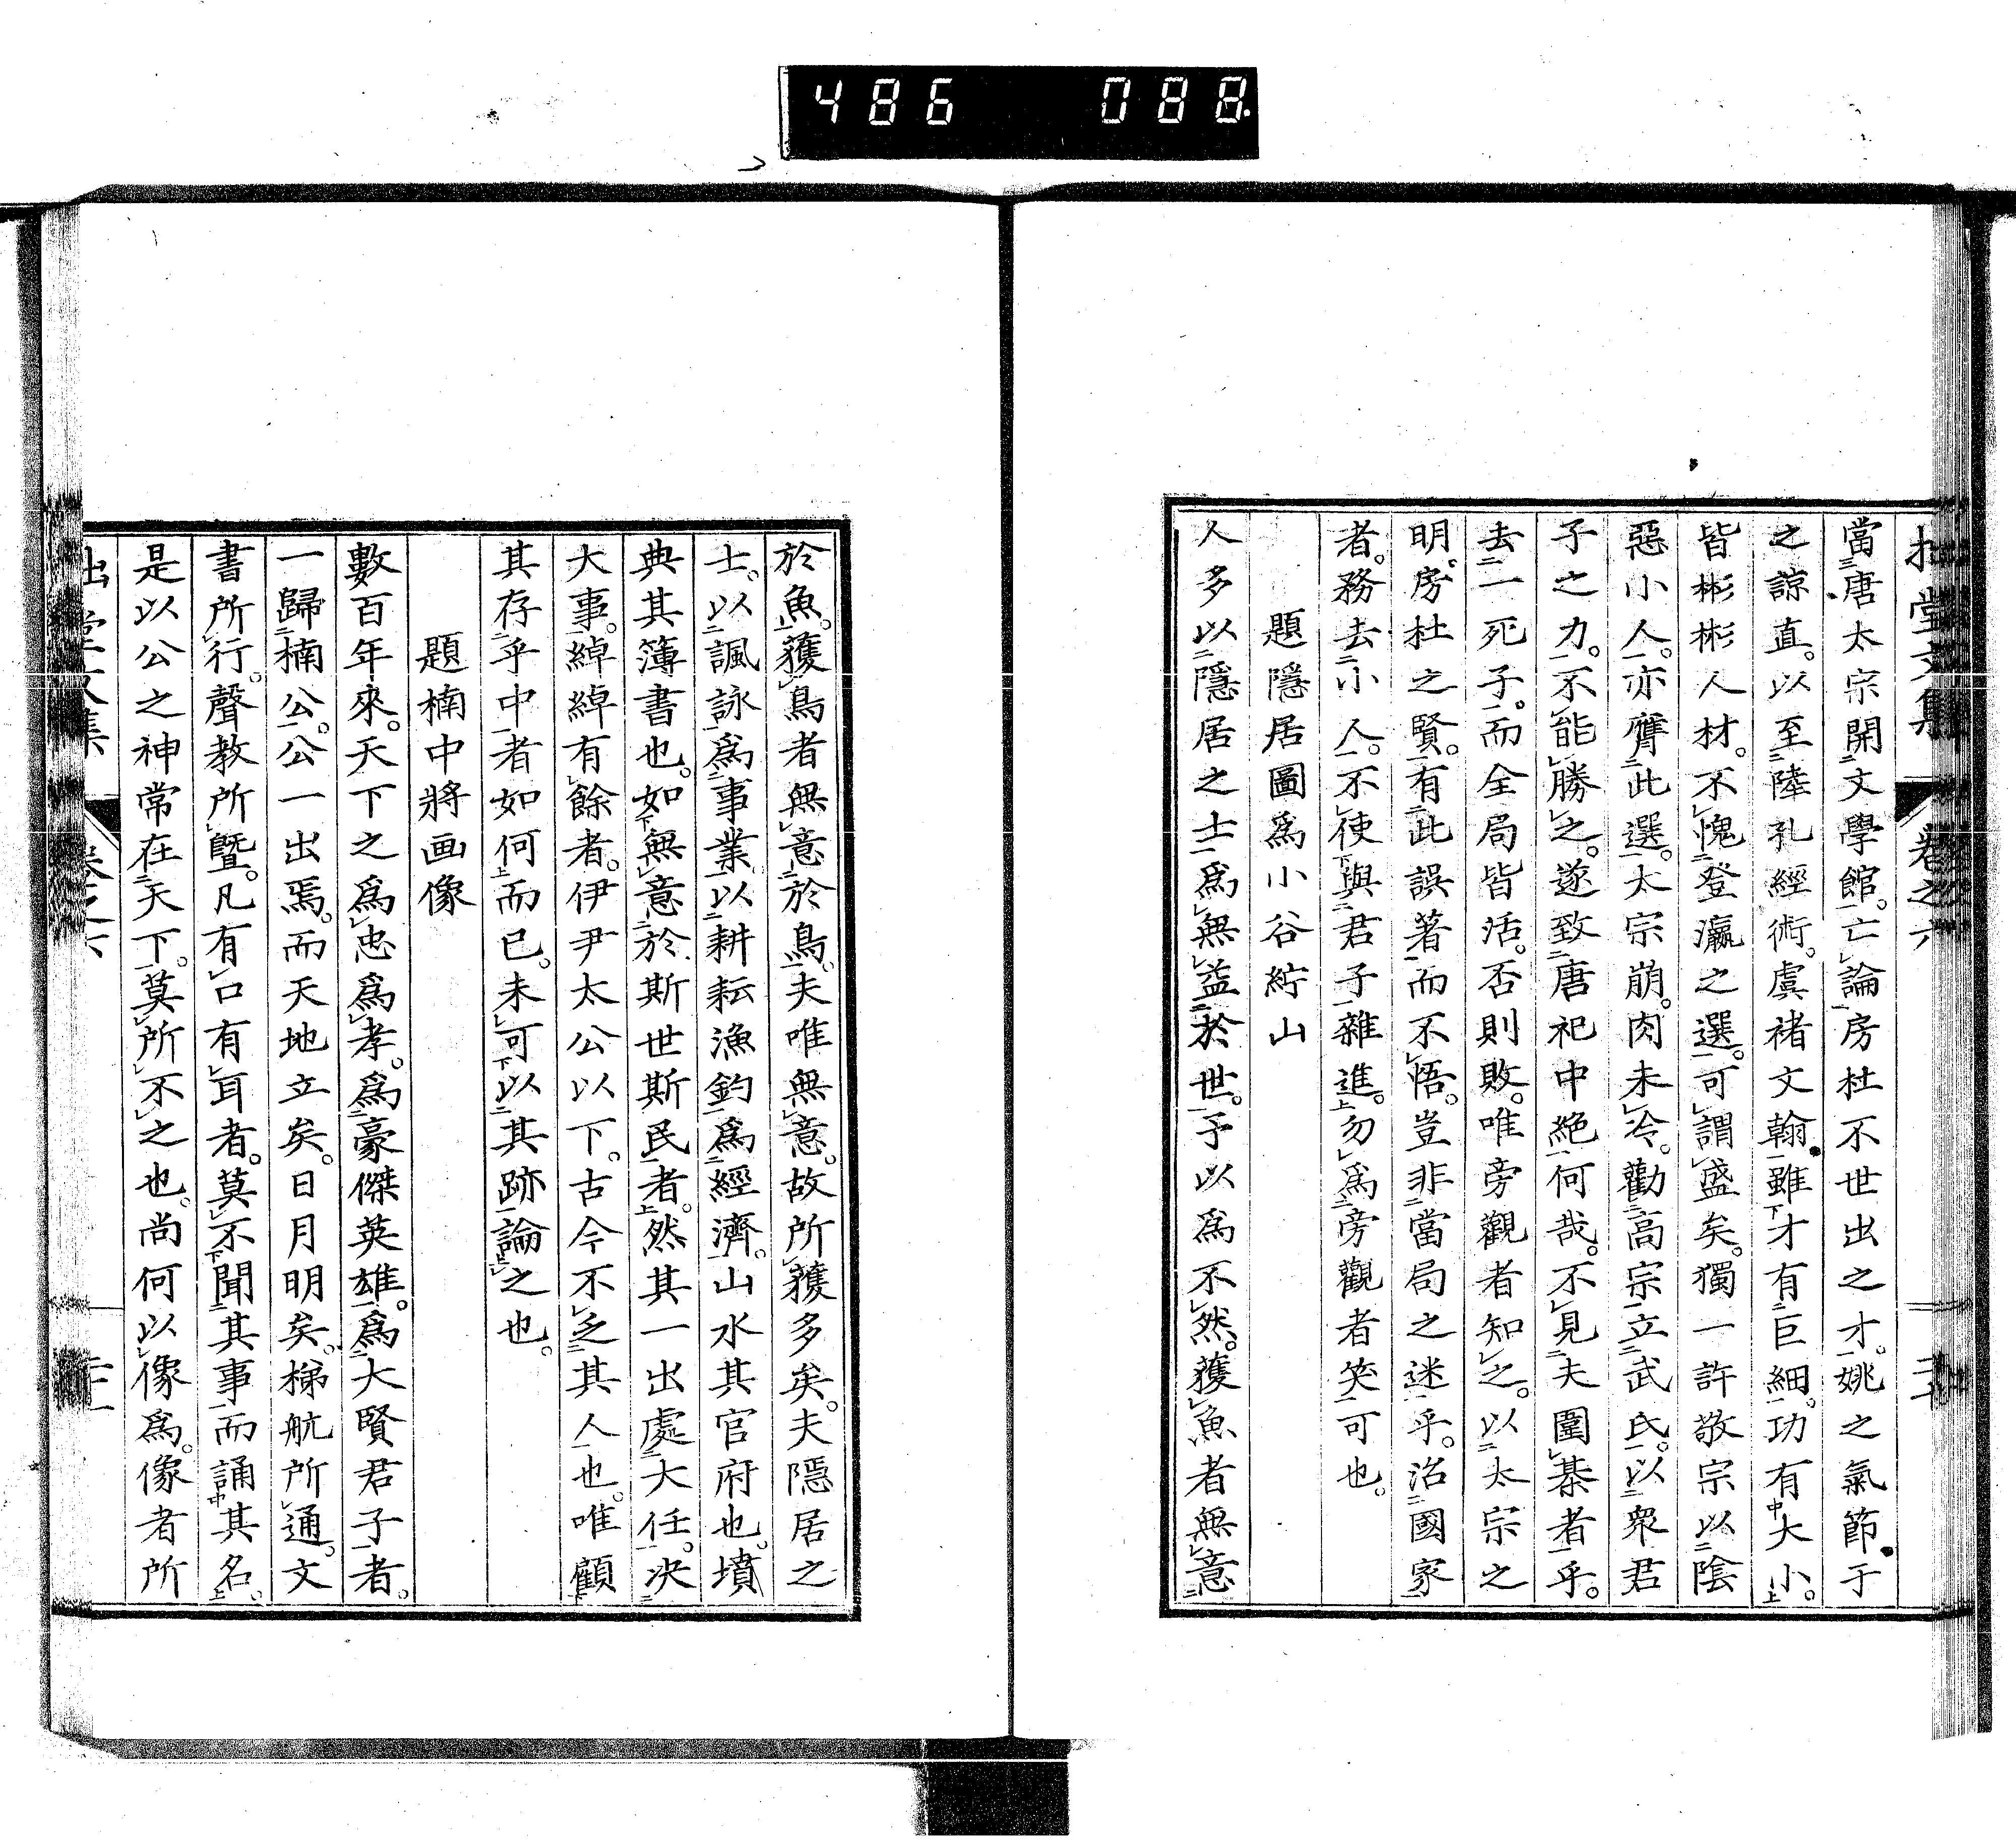 486 088
拙堂文集 卷之六
當唐太宗開文學館。亡論房杜不世出之才。姚之氣節于
之諒直。以至陸孔經術。虞褚文翰。雖才有巨細。功有大小。
皆彬彬人材。不愧登瀛之選。可謂盛矣。獨一許敬宗以陰
惡小人。亦膺此選。太宗崩。肉未冷。勸高宗立武氏。以衆君
子之力。不能勝之。遂致唐祀中絶何哉。不見夫圍棊者乎。
去一死子。而全局皆活。否則敗。唯旁觀者知之。以太宗之
明。房杜之賢。有此誤著而不悟。豈非當局之迷乎。治國家
者。務去小人。不使與君子雜進。勿爲旁觀者笑可也。
題隱居圖爲小谷紵山
人多以隱居之士爲無益於世。予以爲不然。獲魚者無意
於魚。獲鳥者無意於鳥。夫唯無意。故所獲多矣。夫隱居之
士。以諷詠爲事業。以耕耘漁釣爲經濟。山水其官府也。墳
典其簿書也。如無意於斯世斯民者。然其一出處大任。決
大事。綽綽有餘者。伊尹太公以下。古今不乏其人也。唯顧
其存乎中者如何而已。未可以其跡論之也。
題楠中將画像
數百年來。天下之爲忠爲孝。爲豪傑英雄。爲大賢君子者。
一歸楠公。公一出焉。而天地立矣。日月明矣。梯航所通。文
書所行。聲教所曁。凡有口有耳者。莫不聞其事而誦其名。
是以公之神常在天下。莫所不之也。尚何以像爲。像者所